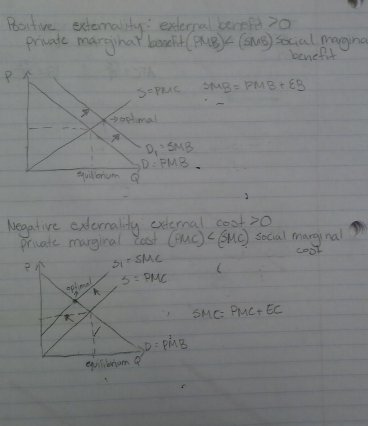 Positive externality: external benefit >0
private marginal benefit (PMB) < (SMB) social marginal
benefit
P
S=PMC
SMB = PMB + EB
→optimal
D₁ = SMB
D = PMB
equilibrium Q
Negative externality external cost >0
private marginal cost (PMC) < (SMC) social marginal
cost
P
S₁ = SMC
optimal
S = PMC
SMC = PMC + EC
D = PMB
equilibrium Q